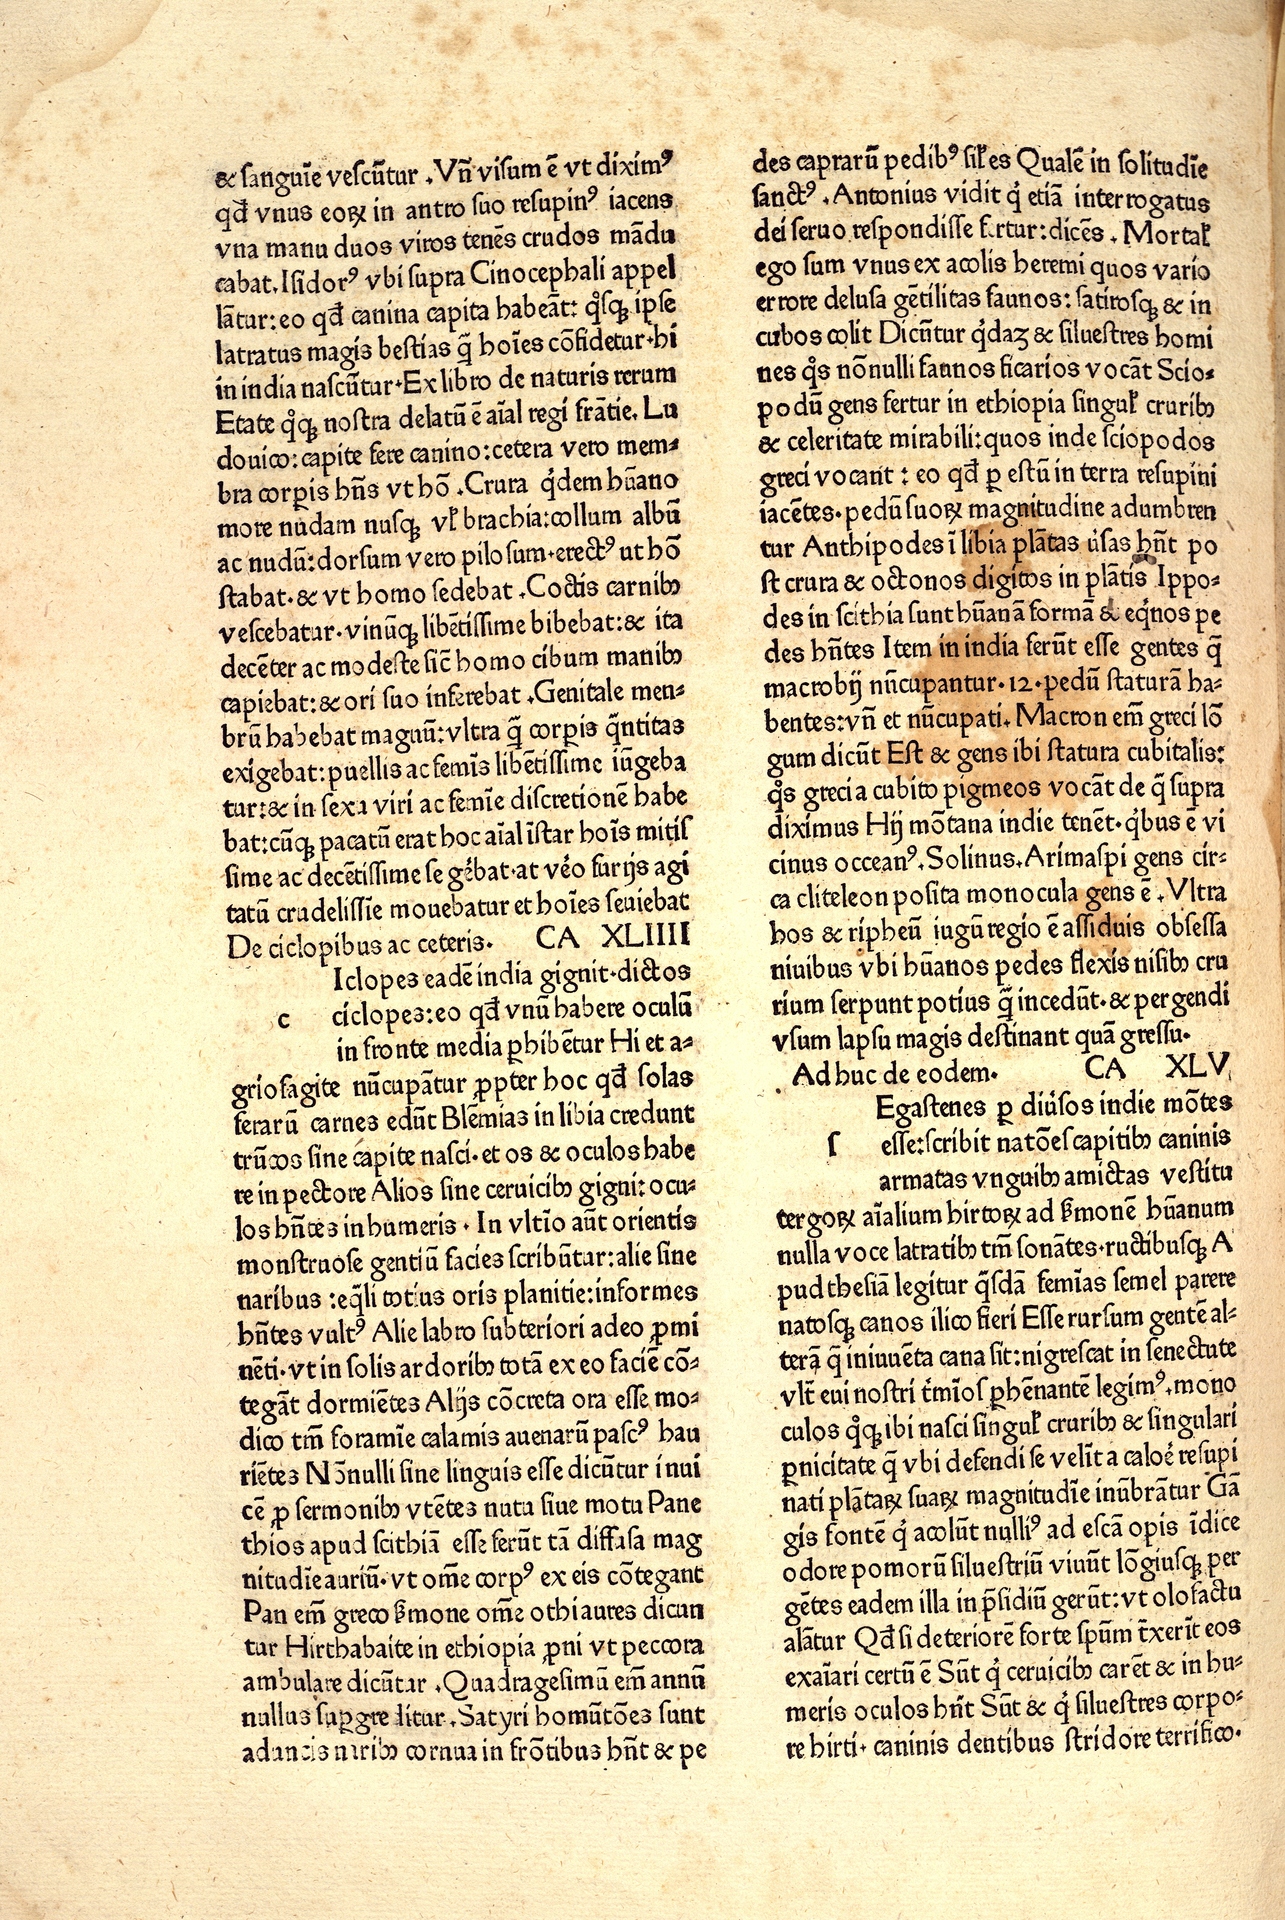 & sanguīe vescūtur .Vn̄ visum ē vt diximꝰ
qđ vnus eoꝝ in antro suo resupinꝰ iacens
vna manu duos viros tenēs crudos mādu
cabat.Isidorꝰ vbi supra Cinocephali appel
lātur:eo qđ canina capita habeāt: qͦsqꝫ ipse
latratus magis bestias q̄ hoīes cōfidetur·hi
in india nascūtur·Ex libro de naturis rerum
Etate qͦqꝫ nostra delatū ē aīal regi frātie. Lu
douico: capite fere canino:cetera vero mem⸗
bra corꝑis hn̄s vt hō .Crura qͥdem hūano
more nudam nusqꝫ vl̄ brachia:collum albū
ac nudū:dorsum vero pilosum·erectꝰ ut hō
stabat·& vt homo sedebat .Coctis carnibꝫ
vescebatur·vinūqꝫ libētissime bibebat:& ita
decēter ac modeste sic̄ homo cibum manibꝫ
capiebat:& ori suo inferebat .Genitale men⸗
brū habebat magnū:vltra q̄ corꝑis q̄ntitas
exigebat:puellis ac femīs libētissime iūgeba
tur:& in sexu viri ac femīe discretionē habe
bat:cūqꝫ pacatū erat hoc aīal īstar hoīs mitis
sime ac decētissime se gēbat·at vēo furijs agi
tatū crudelissīe mouebatur et hoīes seuiebat
De ciclopibus ac ceteris. CA XLIIII
Iclopes eadē india gignit·dictos
c ciclopes:eo qđ vnū habere oculū
in fronte media ꝑhibētur Hi et a⸗
griofagite nūcupātur ꝓpter hoc qđ solas
ferarū carnes edūt Blēmias in libia credunt
trūcos sine capite nasci·et os & oculos habe
re in pectore Alios sine ceruicibꝫ gigni:ocu⸗
los hn̄tes in humeris · In vltīo aūt orientis
monstruose gentiū facies scribūtur:alie sine
naribus :eq̄li totius oris planitie:informes
hn̄tes vultꝰ Alie labro subteriori adeo ꝓmi
nēti·vt in solis ardoribꝫ totā ex eo faciē cō⸗
tegāt dormiētes Alijs cōcreta ora esse mo⸗
dico tm̄ foramīe calamis auenarū pascꝰ hau
riētes Nōnulli sine linguis esse dicūtur inui
cē ꝓ sermonibꝫ vtētes nutu siue motu Pane
thios apud scithiā esse ferūt tā diffusa mag
nitudīe auriū·vt om̄e corpꝰ ex eis cōtegant
Pan em̄ greco s̄mone om̄e othi aures dicun
tur Hirthabaite in ethiopia ꝓni vt peccora
ambulare dicūtur .Quadragesimū em̄ annū
nullus suꝑgreditur .Satyri homūtōes sunt
aduncis naribꝫ cornua in frōtibus hn̄t & pe
des caprarū pedibꝰ sil̄es Qualē in solitudīe
sanctꝰ .Antonius vidit qͥ etiā interrogatus
dei seruo respondisse fertur:dicēs . Mortal̄
ego sum vnus ex acolis heremi quos vario
errore delusa gētilitas faunos: satirosqꝫ & in
cubos colit Dicūtur qͥdaꝫ & siluestres homi
nes qͦs nōnulli faunos ficarios vocāt Scio⸗
podū gens fertur in ethiopia singul̄ cruribꝫ
& celeritate mirabili:quos inde sciopodos
greci vocant : eo qđ ꝑ estū in terra resupini
iacētes·pedū suoꝝ magnitudine adumbren
tur Anthipodes ī libia plātas ūsas hn̄t po
st crura & octonos digitos in plātis Ippo⸗
des in scithia sunt hūanā formā & eqͥnos pe
des hn̄tes Item in india ferūt esse gentes q̄
macrobij nūcupantur·12·pedū staturā ha⸗
bentes:vn̄ et nūcupati. Macron em̄ greci lō
gum dicūt Est & gens ibi statura cubitalis:
qͦs greci a cubito pigmeos vocāt de q̄ supra
diximus Hij mōtana indie tenēt·qͥbus ē vi
cinus occeanꝰ.Solinus.Arimaspi gens cir⸗
ca cliteleon posita monocula gens ē .Vltra
hos & ripheū iugū regio ē assiduis obsessa
niuibus vbi hūanos pedes flexis nisibꝫ cru
rium serpunt potius q̄ incedūt·& pergendi
vsum lapsu magis destinant quā gressu.
Ad huc de eodem. CA XLV
Egastenes ꝑ diūsos indie mōtes
ſ esse:scribit natōes capitibꝫ caninis
armatas vnguibꝫ amictas vestitu
tergoꝝ aīalium hirtoꝝ ad s̄monē hūanum
nulla voce latratibꝫ tm̄ sonātes·ructibusqꝫ A
pud thesiā legitur q̄sdā femīas semel parere
natosqꝫ canos ilico fieri Esse rursum gentē al⸗
terā q̄ iniuuēta cana sit:nigrescat in senectute
vlt̄ eui nostri t̄mīos ꝑhēnantē legimꝰ.mono
culos qͦqꝫ ibi nasci singul̄ cruribꝫ & singulari
ꝑnicitate q̄ vbi defendi se velīt a caloē resupi
nati plātaꝝ suaꝝ magnitudīe inūbrātur Gā
gis fontē qͥ acolūt nulliꝰ ad escā opis īdice
odore pomorū siluestriū viuūt lōgiusqꝫ per
gētes eadem illa in p̄sidiū gerūt:vt olofactu
alātur Qđ si deteriorē forte spūm t̄xerīt eos
exaīari certū ē Sūt qͥ ceruicibꝫ carēt & in hu⸗
meris oculos hn̄t Sūt & qͥ siluestres corpo⸗
re hirti· caninis dentibus stridore terrifico·